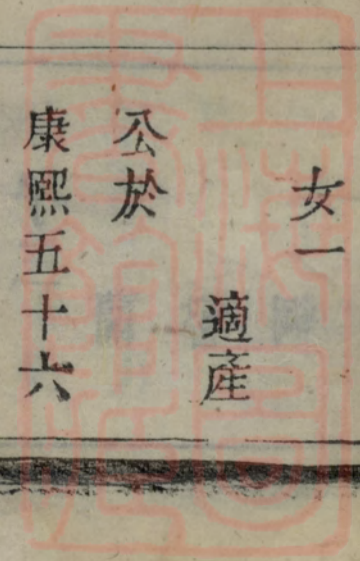 女一
適產
公於
康熙五十六